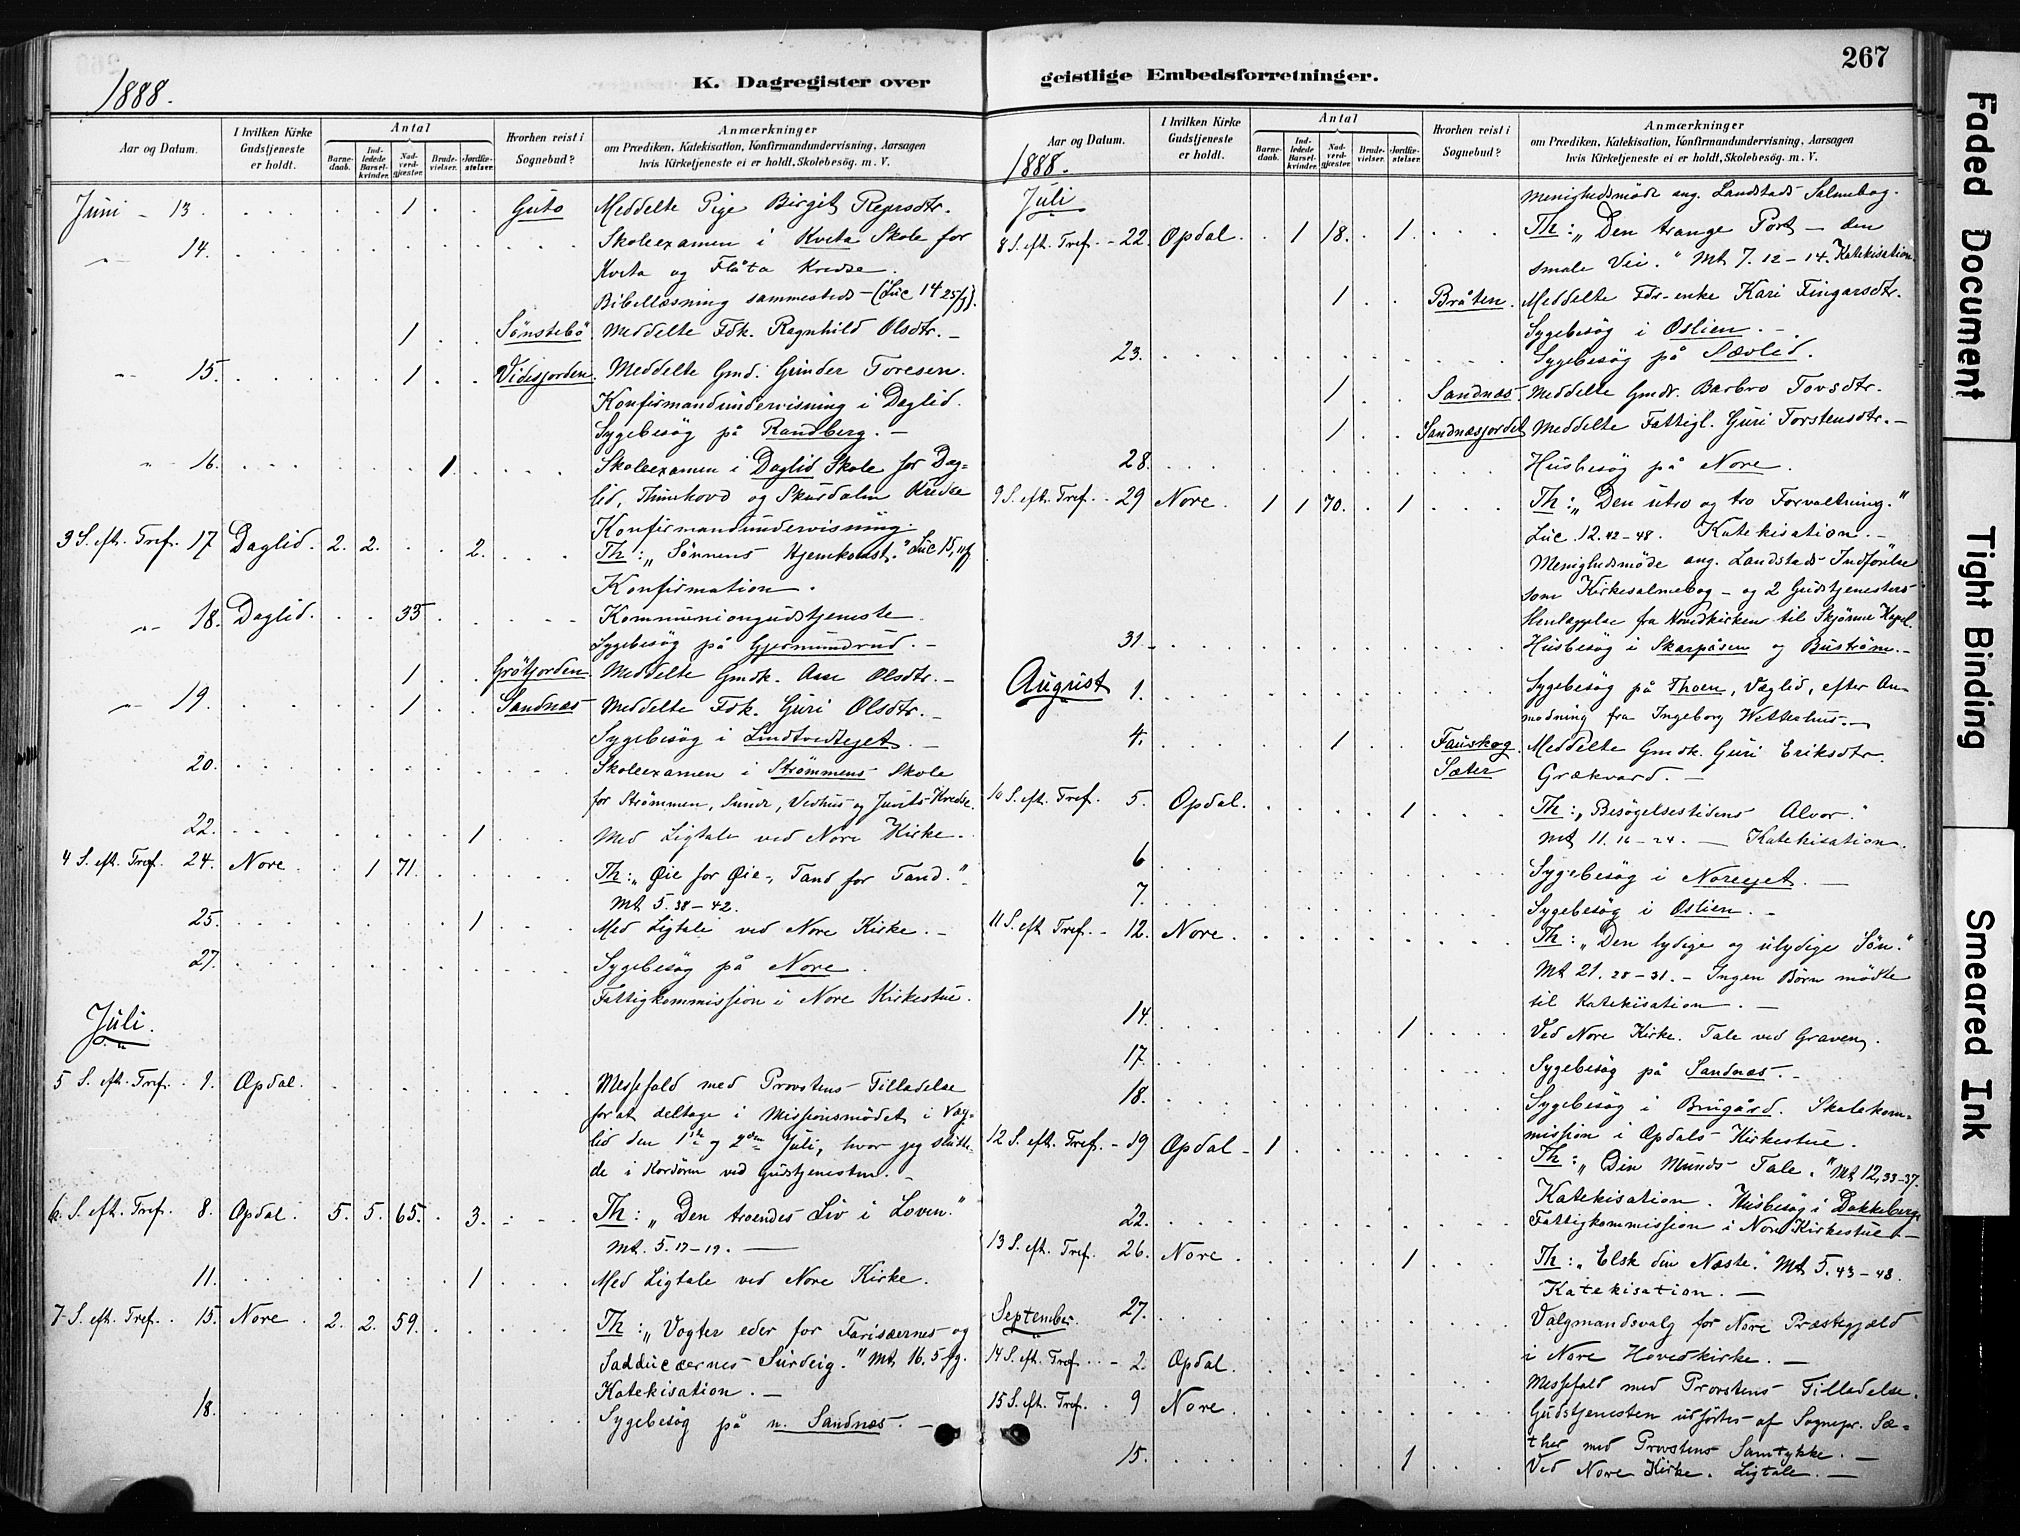 267
1888.
K. Dagregister over
geistlige Embedsforretninger.
Aar og Datum.
I hvilken Kirke Gudstjeneste er holdt.
Antal
Barnedaab.
Indledede Barselkvinder.
Nadverdgjæster.
Brudevielser.
Jordfæstelser.
Hvorhen reist i Sognebud?
Anmærkninger
om Prædiken, Katekisation, Konfirmandundervisning, Aarsagen
hvis Kirketjeneste ei er holdt, Skolebesøg. m. V.
Juni - 13. 1 Guto Meddelte Pige Birgit
14. Skoleexamen i Kvita Skole for
Kvita og Flåta Kredse.
Bibellæsning sammesteds - (Luc 14 25/).
1 Sønstebö Meddelte Fdk. Ragnhild Olsdtr. -
15. 1 Vidisjorden. Meddelte Gmd. Grinder Toresen.
Konfirmandundervisning i Daglid.
Sygebesøg på Randberg. -
16. 1 Skoleexamen i Daglid Skole for Dag-
lid, og Skurdalen Kredse
Konfirmandundervisning.
3 S. eft. Tref. 17 Daglid. 2. 2. 2. Th: „Sønnens Hjemkomst." Luc 15, 11 ff
Konfirmation.
18. Daglid. 35 Kommuniongudstjeneste.
Sygebesøg på Gjermundrud. -
1 Grötjorden Meddelte Gmdk. Olsdtr. -
19. 1 Sandnæs Meddelte Fdk. Guri Olsdtr. -
Sygebesøg i Lindtvedtejet. -
20. Skoleexamen i Strømmens Skole
for Strømmen, Sunde, Vedhus og Kredse.
22. 1 Med Ligtale ved Nore Kirke.
4 S. eft. Tref. 24. Nore. 1 71. Th: „Øie for Øie, Tand for Tand."
Mt 5. 38-42.
25. 1 Med Ligtale ved Nore Kirke. -
27. Sygebesøg på Nore.
Fattigkommission i Nore Kirkestue.
Juli.
5 S. eft. Tref. 1. Opdal. Messefald med Provstens Tilladelse
for at deltage i Missionsmødet i Væg-
lid den 1ste og 2den Juli, hvor jeg slutte-
de i Kordören ved Gudstjenesten. -
6. S. eft. Tref. 8. Opdal. 5. 5. 65. 3. Th: „Den troendes Liv i Loven."
Mt. 5. 17-19. -
11. 1 Med Ligtale ved Nore Kirke.
7 S. eft. Tref. 15. Nore. 2. 2. 59. Th: „Vogter eder for Farisæernes og
Sadducæernes Surdeig." Mt. 16. 5 flg.
Katekisation. -
18. Sygebesøg på n. Sandnæs. -
Aar og Datum.
I hvilken Kirke Gudstjeneste er holdt.
Antal
Barnedaab.
Indledede Barselkvinder.
Nadverdgjæster.
Brudevielser.
Jordfæstelser.
Hvorhen reist i Sognebud?
Anmærkninger
om Prædiken, Katekisation, Konfirmandundervisning, Aarsagen
hvis Kirketjeneste ei er holdt, Skolebesøg. m. V.
1888.
Juli Menighedsmøde ang. Landstads Salmebog.
8 S. eft. Tref. - 22. Opdal. 1 18. 1. Th: „Den trange Port - den
smale Vei." Mt 7. 12-14. Katekisation.
1 Bråten. Meddelte Fdr-enke Kari Fingarsdtr.
Sygebesøg i Oslien. -
23. Sygebesøg på Nævlid.
1 Sandnæs. Meddelte Gmdr. Barbro Tovsdtr.
1 Sandnæsjordet Meddelte Fattigl. Guri Torstensdtr. -
28. Husbesøg på Nore.
9 S. eft. Tref. 29 Nore. 1 1 70. 1 Th: „Den utro og tro Forvaltning."
Luc. 12. 42-48. Katekisation. -
Menighedsmøde ang. Landstads Indförelse
som Kirkesalmebog - og 2 Gudstjenesters
Henlæggelse fra Hovedkirken til Skjönne Kapel.
31. Husbesøg i Skarpåsen og Buström. -
August 1. Sygebesøg på Thoen, Væglid, efter An-
modning fra Ingeborg Wetterhus. -
4. 1 Fauskog Sæter Meddelte Gmdk. Guri Eriksdtr.
Grækvard. -
10 S. eft. Tref. 5. Opdal. 1 Th: „Besøgelsestidens Alvor."
Mt 11. 16-24. - Katekisation.
6 Sygebesøg i Norejet. -
7. Sygebesøg i Oslien. -
11 S. eft. Tref. - 12. Nore. Th: „Den lydige og ulydige Søn."
Mt 21. 28-31. - Ingen Børn mødte
til Katekisation. -
14. 1 Ved Nore Kirke. Tale ved Graven.
17. Sygebesøg på Sandnæs. -
18. Sygebesøg i Brugård. Skolekom-
mission i Opdals Kirkestue.
12 S. eft. Tref. - 19 Opdal - 1 Th: „Din Munds Tale." Mt 12, 33-37.
Katekisation. Husbesøg i Dokkeberg.
22. Fattigkommission i Nore Kirkestue. -
13 S. eft. Tref. 26. Nore. 1 Th: „Elsk din Næste." Mt 5. 43-48.
Katekisation. -
27. Valgmandsvalg for Nore Præstegjæld
i Nore Hovedkirke. -
September
14 S. eft. Tref. - 2. Opdal. Messefald med Provstens Tilladelse.
15 S. eft. Tref. 9 Nore. Gudstjenesten udførtes af Sognepr. Sæ-
ther med Provstens Samtykke. -
15. 1 Ved Nore Kirke. Ligtale. -
Faded Document
Tight Binding
Smeared Ink